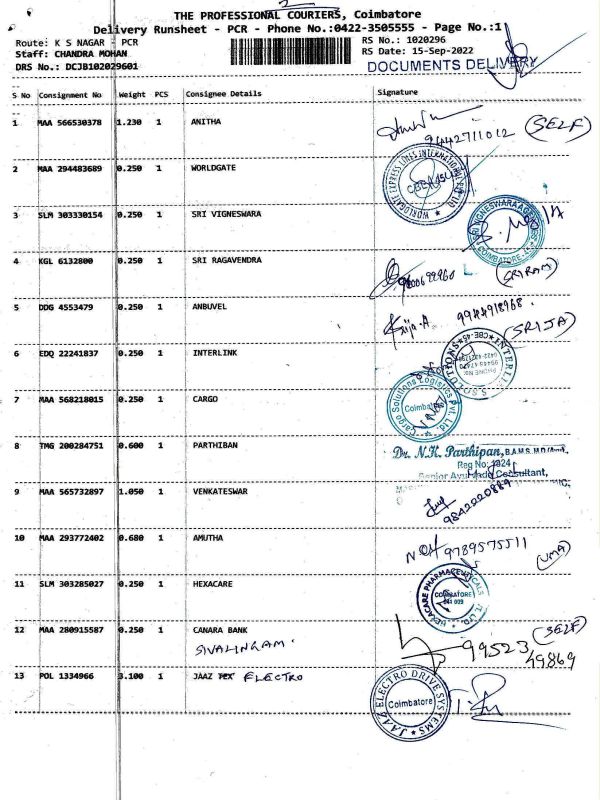 THE PROFESSIONAL COURIERS, Coimbatore
Delivery Runsheet - PCR - Phone No.:0422-3505555 - Page No.:1
Route: K S NAGAR - PCR RS No.: 1020296
Staff: CHANDRA MOHAN RS Date: 15-Sep-2022
DRS No.: DCJB102029601 DOCUMENTS DELIVERY
S No Consignment No Weight PCS Consignee Details Signature
1 MAA 566530378 1.230 1 ANITHA
9442711012 (SELF)
2 MAA 294483689 0.250 1 WORLDGATE
WORLDGATE EXPRESS LINES INTERNATIONAL
3 SLM 303330154 0.250 1 SRI VIGNESWARA
SRI VIGNESWARA COIMBATORE
4 KGL 6132800 0.250 1 SRI RAGAVENDRA
(SRIRAM)
5 DDG 4553479 0.250 1 ANBUVEL
9944918968. (SRIJA)
6 EDQ 22241837 0.250 1 INTERLINK
7 MAA 568218015 0.250 1 CARGO
Cargo Solutions Logistics Pvt. Ltd. Coimbatore
8 TMG 200284751 0.600 1 PARTHIBAN
Dr. N.K. Parthipan, B.A.M.S.
Reg No:
Senior Consultant,
9 MAA 565732897 1.050 1 VENKATESWAR
10 MAA 293772402 0.680 1 AMUTHA
9789575511 (UMA)
11 SLM 303285027 0.250 1 HEXACARE
HEXACARE PHARMACEUTICALS COIMBATORE
12 MAA 280915587 0.250 1 CANARA BANK
SIVALINGAM. 99523 49869 (SELF)
13 POL 1334966 3.100 1 JAAZ ELECTRO
JAAZ ELECTRO DRIVE SYSTEMS Coimbatore